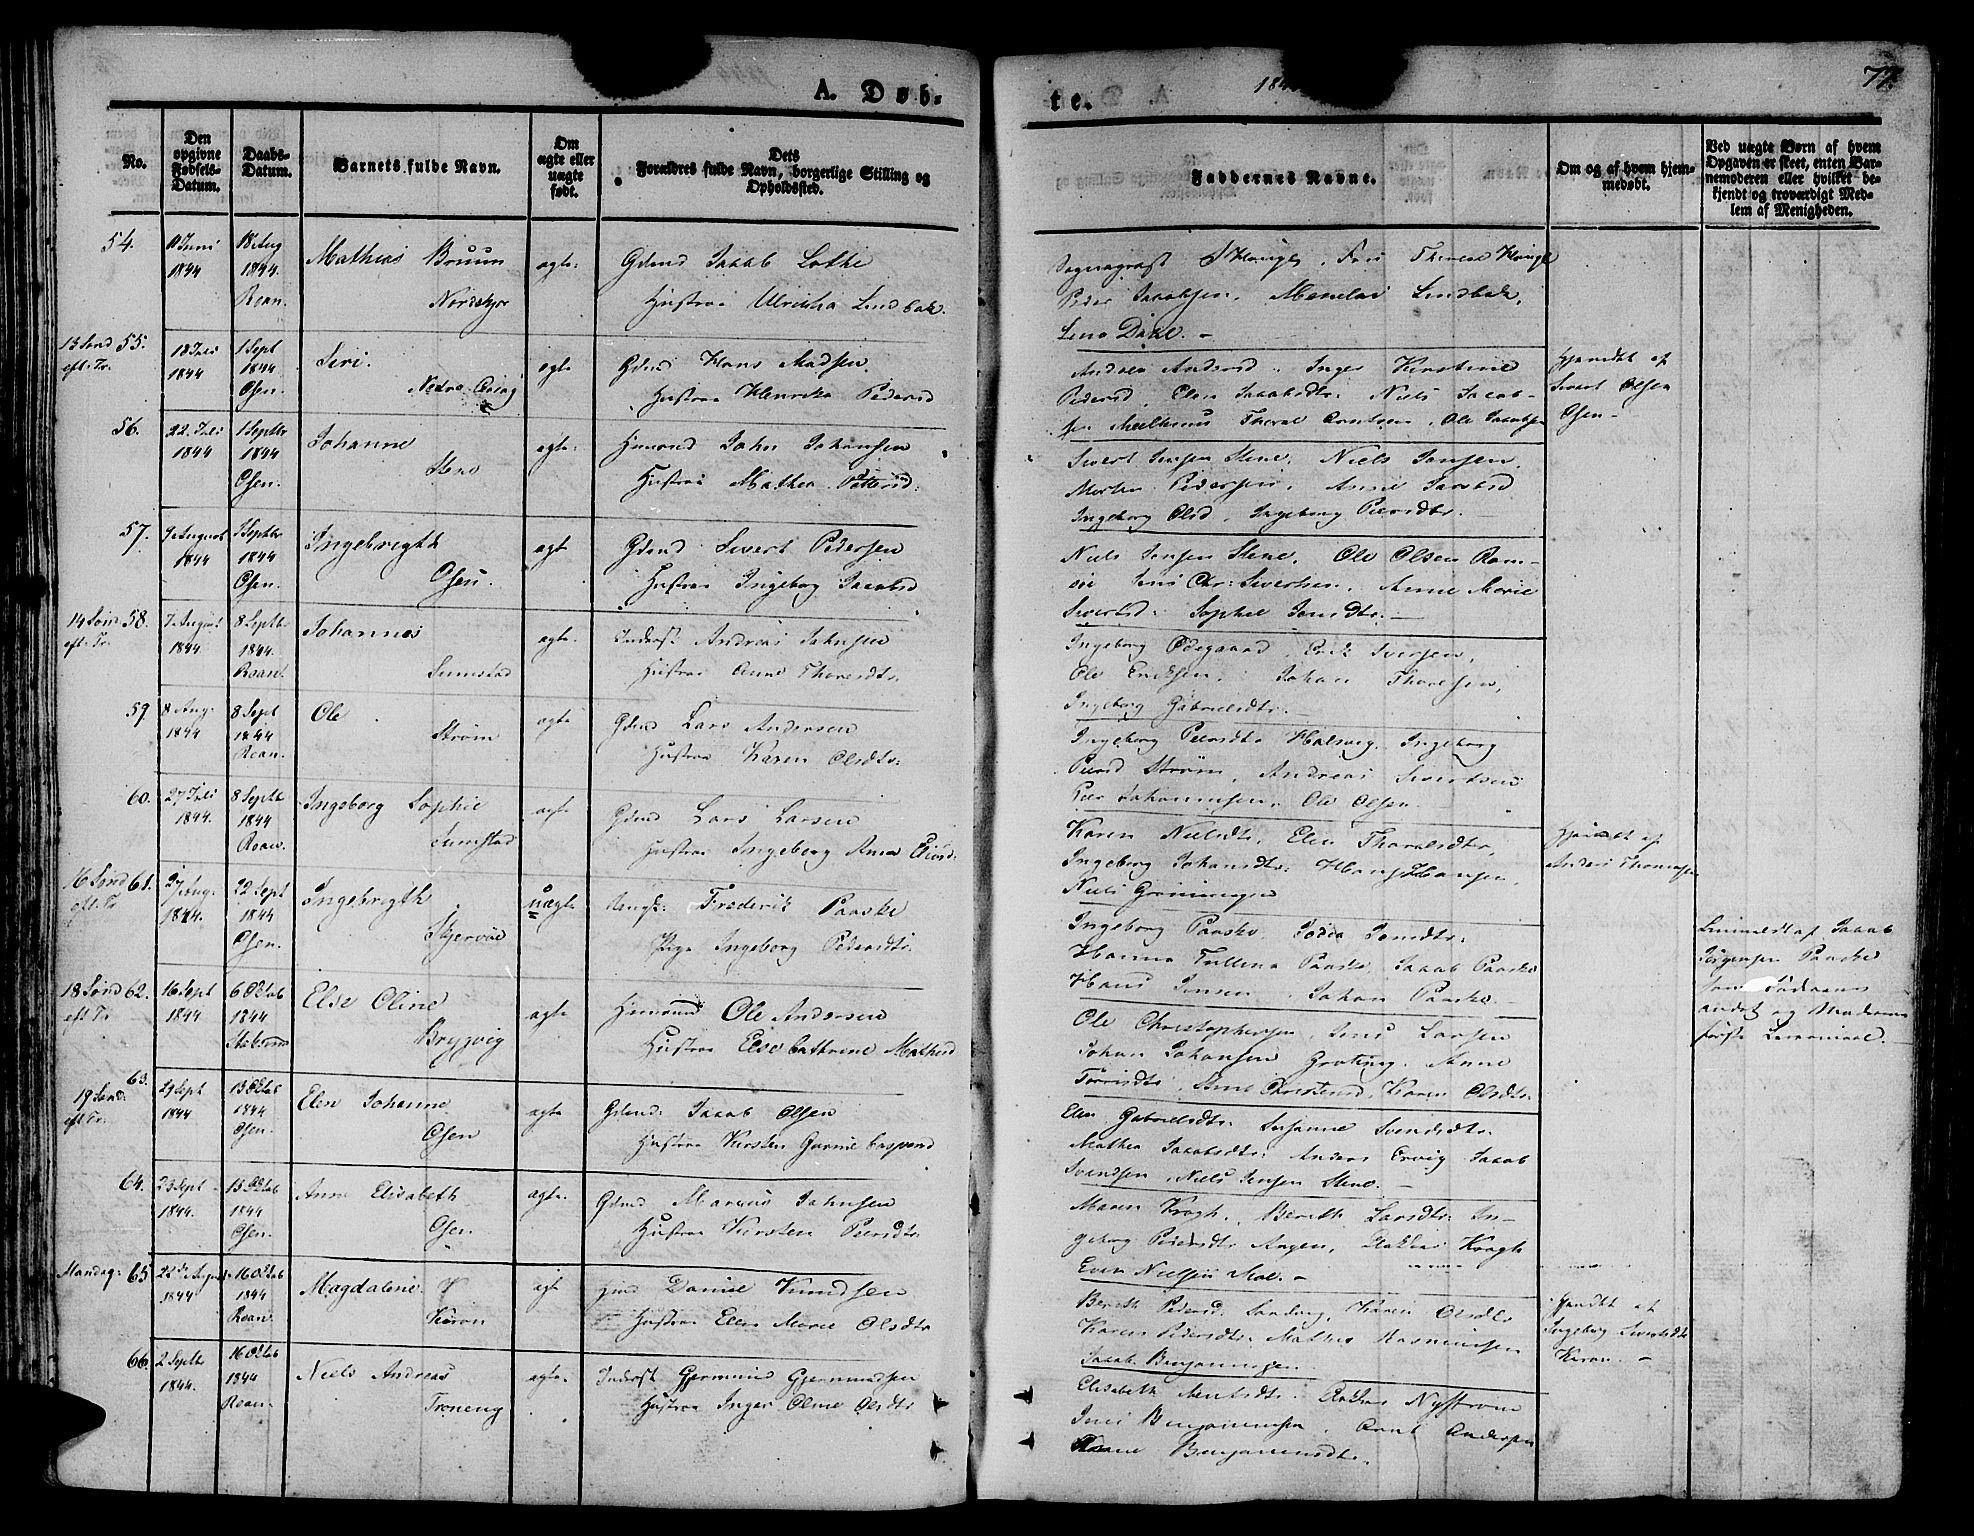 A. Døb-
te.
184
77.
No.
Den opgivne Fødsels-Datum.
Daabs-Datum.
Barnets fulde Navn.
Om ægte eller uægte født.
Dets Forældres fulde Navn, borgerlige Stilling og Opholdssted.
Faddernes Navne.
Om og af hvem hjem-medøbt.
Ved uægte Børn af hvem Opgaven er skeet, enten Bar-nemoderen eller hvilket be-kjendt og troværdigt Med-lem af Menigheden.
54.
Juni 1844
18 Aug 1844. Roan.
Mathias Bruun
Nordskjør
ægte
Gdmd Jacob Lothe
Hustroe Ulrikka Lindbak.
Peder Jacobsen,
Lindbak,
Lena Dahl. -
13 Sønd eft. Tr.
55.
18 Juli 1844
1 Sept 1844 Osen.
Siri.
Nedre
ægte
Gdmd Hans Madsen,
Hustroe Henrikke Pedersd
Andrea Andersd. Inger Kirstine
Pedersd, Elen Jacobsdtr. Niels Jacob-
sen
Ole Jacobsen
Hjemdøbt af
Sivert Olsen
Osen -
56.
22 Juli 1844
1 Septbr 1844 Osen.
Johanne
Steno
ægte
Hmand John Johansen
Hustroe Mathea Pettersd.
Sivert Jensen Stene, Niels Jensen,
Morten Pedersen, Anne Jacobsd
Ingeborg Olsd, Ingeborg Peersdtr.
57.
9 August 1844
1 Septbr 1844 Osen.
Ingebrigth
Osen.
ægte
Gdmd Sivert Pedersen
Hustroe Ingeborg Jacobsd
Niels Jensen Stene, Ole Olsen Ram-
søe Jens Chr. Sivertsen, Anne Marie
Sivertsd. Sophie Jensdtr. -
14 Sønd eft. Tr.
58.
7 August 1844
8 Septb. 1844. Roan.
Johannes
Sumstad
ægte
Inderst Andreas Johnsen
Hustroe Anne Thoresdtr.
Ingeborg Ødegaard, Erik Iversen,
Ole Eriksen, Johan Thoresen,
Ingeborg Gabrielsdtr. -
59
8 Aug. 1844
8 Sept 1844 Roan.
Ole
Strøm
ægte
Gdmd Lars Andersen
Hustroe Karen Olsdtr.
Ingeborg Peersdtr Ingeborg
Peersd Strøm, Andreas Sivertsen
Peer Johannesen, Ole Olsen.
60.
27 Juli 1844.
8 Septb 1844 Roan.
Ingeborg Sophie
Sumstad
ægte
Gdmd Lars Larsen
Hustroe Ingeborg Anna
Karen Nielsdtr, Elen Thoresdtr,
Ingeborg Johansdtr. Hans Hansen,
Niels Grønningen
Hjemdøbt af
Anders Thomesen
16 Sønd eft. Tr
61.
27 Aug. 1844.
22 Sept 1844 Osen.
Ingebrigth
Skjervøe
uægte
Ungk: Frederik Paaske
Pige Ingeborg Pedersdtr.
Ingeborg Paaske, Jensdtr.
Hanna Paaske, Jacob Paaske
Hans Jensen, Johan Paaske. -
Anmeldt af Jacob
Jørgensen Paaske
som Faderens
andet og Moderens
første Leiermaal.
18 Sønd eft Tr
62.
16 Sept 1844
6 Octob 1844
Else Oline
Brygvig
ægte
Hmand Ole Andersen
Hustroe Else Cathrine Mathisd
Ole Christophersen, Jens Larsen
Johan Johansen Grøtting, Anne
Karen Olsdtr.
19 Sønd: eft Tr.
63.
29 Sept 1844
13 Octob 1844 Osen.
Elen Johanne
Osen
ægte
Gdmd: Jacob Olsen
Hustroe Kirsten Casparsd
Elen Gabrielsdtr. Susanne Svendsdtr.
Mathea Jacobsdtr. Anders Ervig Jacob
Svendsen, Niels Jensen Stene. -
64.
23 Sept 1844.
13 Octob 1844 Osen.
Anne Elisabeth
Osen
ægte.
Gdmd Marcus Johnsen
Hustroe Kirsten Peersdtr.
Maren Krogh, Bereth Larsdtr. In-
geborg Pedersdtr Angen, Krogh
Even Nielsen -
Mandag:
65
22de August 1844
16 Octob 1844 Roan.
Magdalene
Kiran
ægt
Hmd Daniel Knudsen
Hustroe Elen Marie Olsdtr
Bereth Pedersd. Sandvig, Karen Olsdtr
Karen Pedersdtr. Mathis Rasmussen
Jacob Benjaminsen
Hjemdøbt af
Ingeborg Sivertsdtr
Kiran. -
66.
2 Septbr 1844.
16 Octob 1844 Roan.
Niels Andreas
Troneng
ægte.
Inderst Gjermund Gjermundsen
Hustroe Inger Oline Olsdtr
Elisabeth Arntsdtr. Nystrøm
Jens Benjaminsen, Arnt Andersen
Benjaminsdtr.